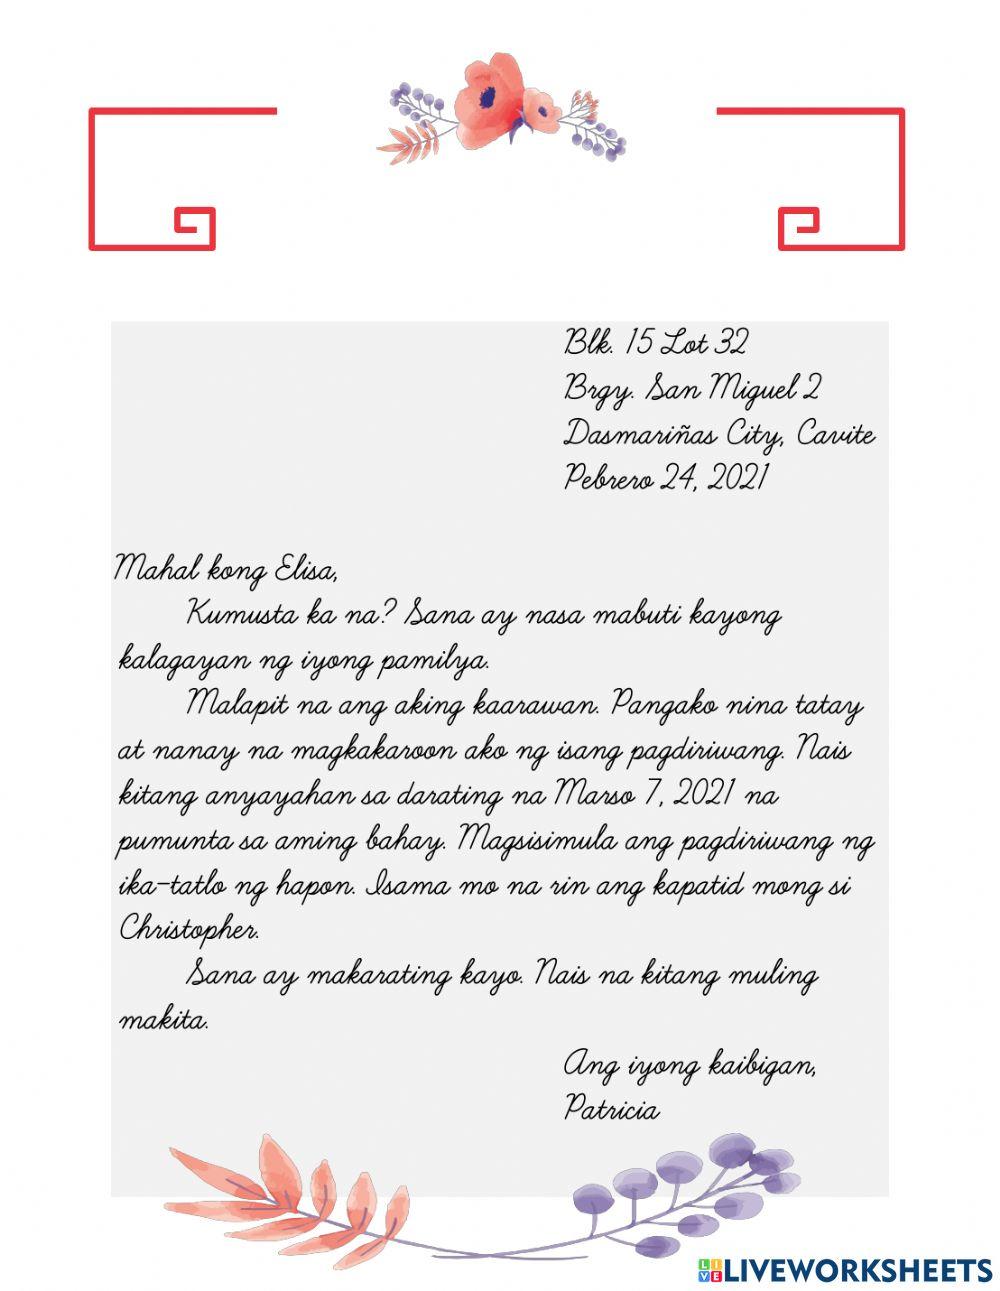 Blk. 15 Lot 32
Brgy. San Miguel 2
Dasmariñas City, Cavite
Pebrero 24, 2021
Mahal kong Elisa,
Kumusta ka na? Sana ay nasa mabuti kayong
kalagayan ng iyong pamilya.
Malapit na ang aking kaarawan. Pangako nina tatay
at nanay na magkakaroon ako ng isang pagdiriwang. Nais
kitang anyayahan sa darating na Marso 7, 2021 na
pumunta sa aming bahay. Magsisimula ang pagdiriwang ng
ika-tatlo ng hapon. Isama mo na rin ang kapatid mong si
Christopher.
Sana ay makarating kayo. Nais na kitang muling
makita.
Ang iyong kaibigan,
Patricia
LIVE LIVEWORKSHEETS